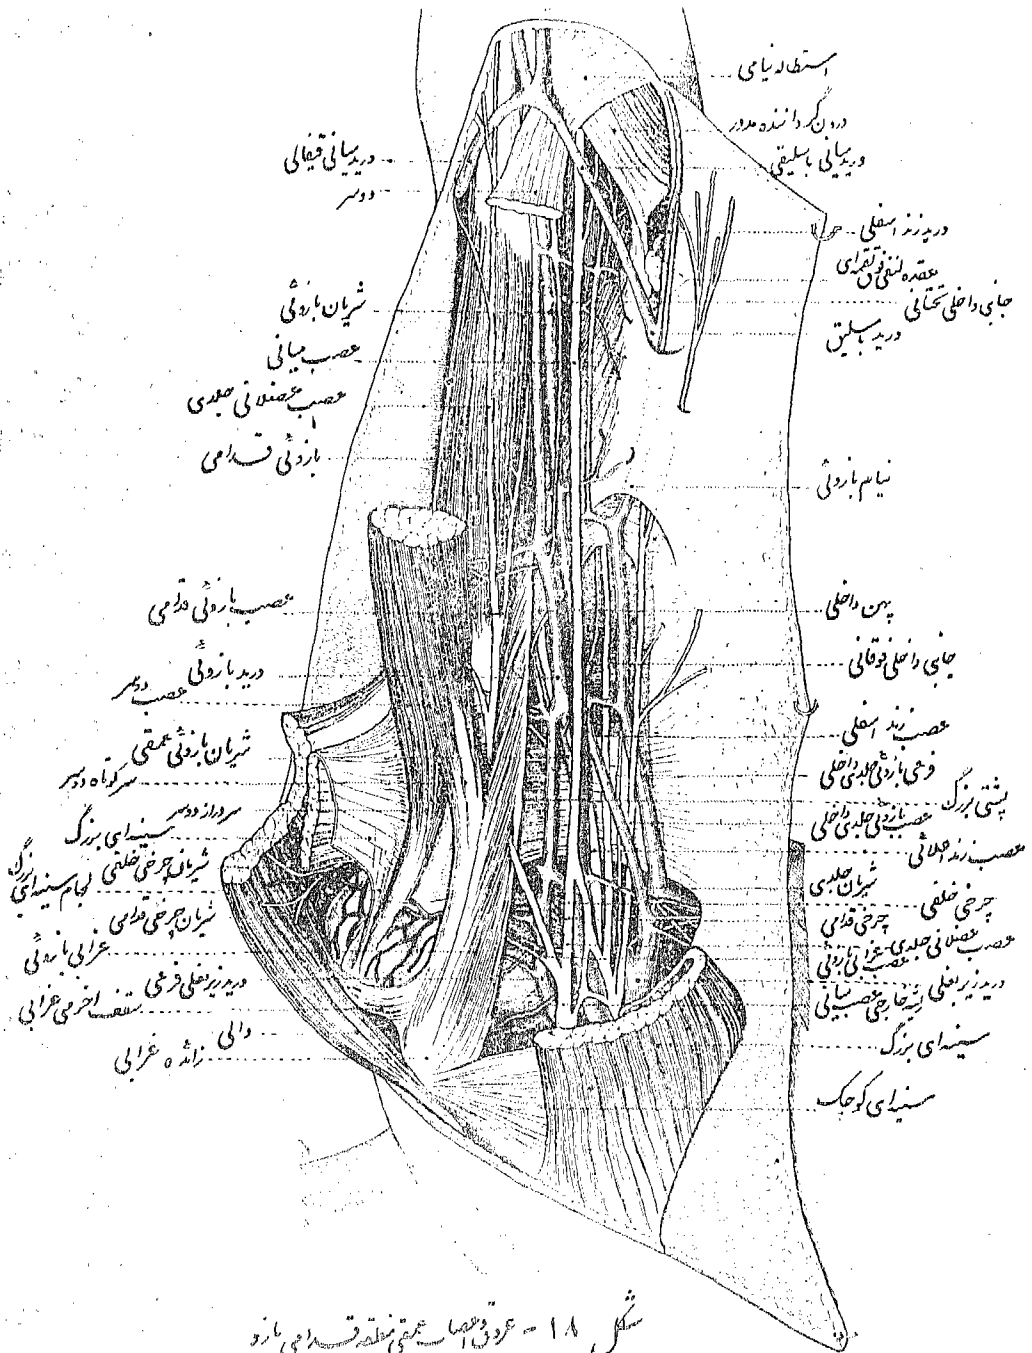 استطاله نیامی
درون گرداننده مدور
ورید میانی باسلیقی
ورید زند اسفلی
عقده لنفی فوق لقمه‌ای
جانبی داخلی تحتانی
ورید باسلیق
نیام بازوئی
پهن داخلی
جانبی داخلی فوقانی
عصب زند اسفلی
فرعی بازوئی جلدی داخلی
پشتی بزرگ
عصب بازوئی جلدی داخلی
عصب زند اعلائی
شریان جلدی
چرخی خلفی
چرخی قدامی
عصب عضلانی جلدی
عصب غرابی بازوئی
ورید زیر بغلی
ریشه خارجی عصب میانی
سینه‌ای بزرگ
سینه‌ای کوچک
ورید میانی قیفالی
دوسر
شریان بازوئی
عصب میانی
عصب عضلانی جلدی
بازوئی قدامی
عصب بازوئی قدامی
ورید بازوئی
عصب دوسر
شریان بازوئی عمقی
سر کوتاه دوسر
سر دراز دوسر
سینه‌ای بزرگ
شریان چرخی خلفی
لجام سینه‌ای بزرگ
شریان چرخی قدامی
غرابی بازوئی
ورید زیر بغلی فرعی
سقف اخرمی غرابی
دالی
زائده غرابی
شکل ۱۸ - عروق و اعصاب عمقی منطقه قدامی بازو